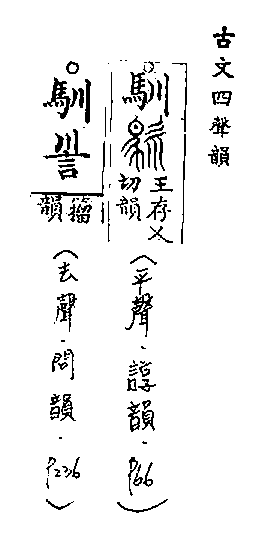 古文四聲韻
馴
王存乂
切韻
（平聲．諄韻．P66）
馴
籀韻
（去聲．問韻．P236）